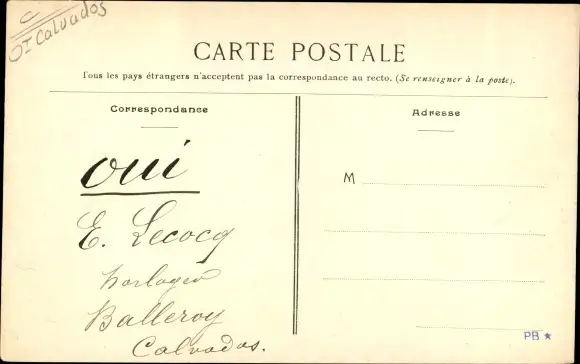 Dt Calvados
CARTE POSTALE
Tous les pays étrangers n'acceptent pas la correspondance au recto. (Se renseigner à la poste).
Correspondance
Adresse
oui
M
E. Lecocq
horloger
Balleroy
Calvados.
PB ★